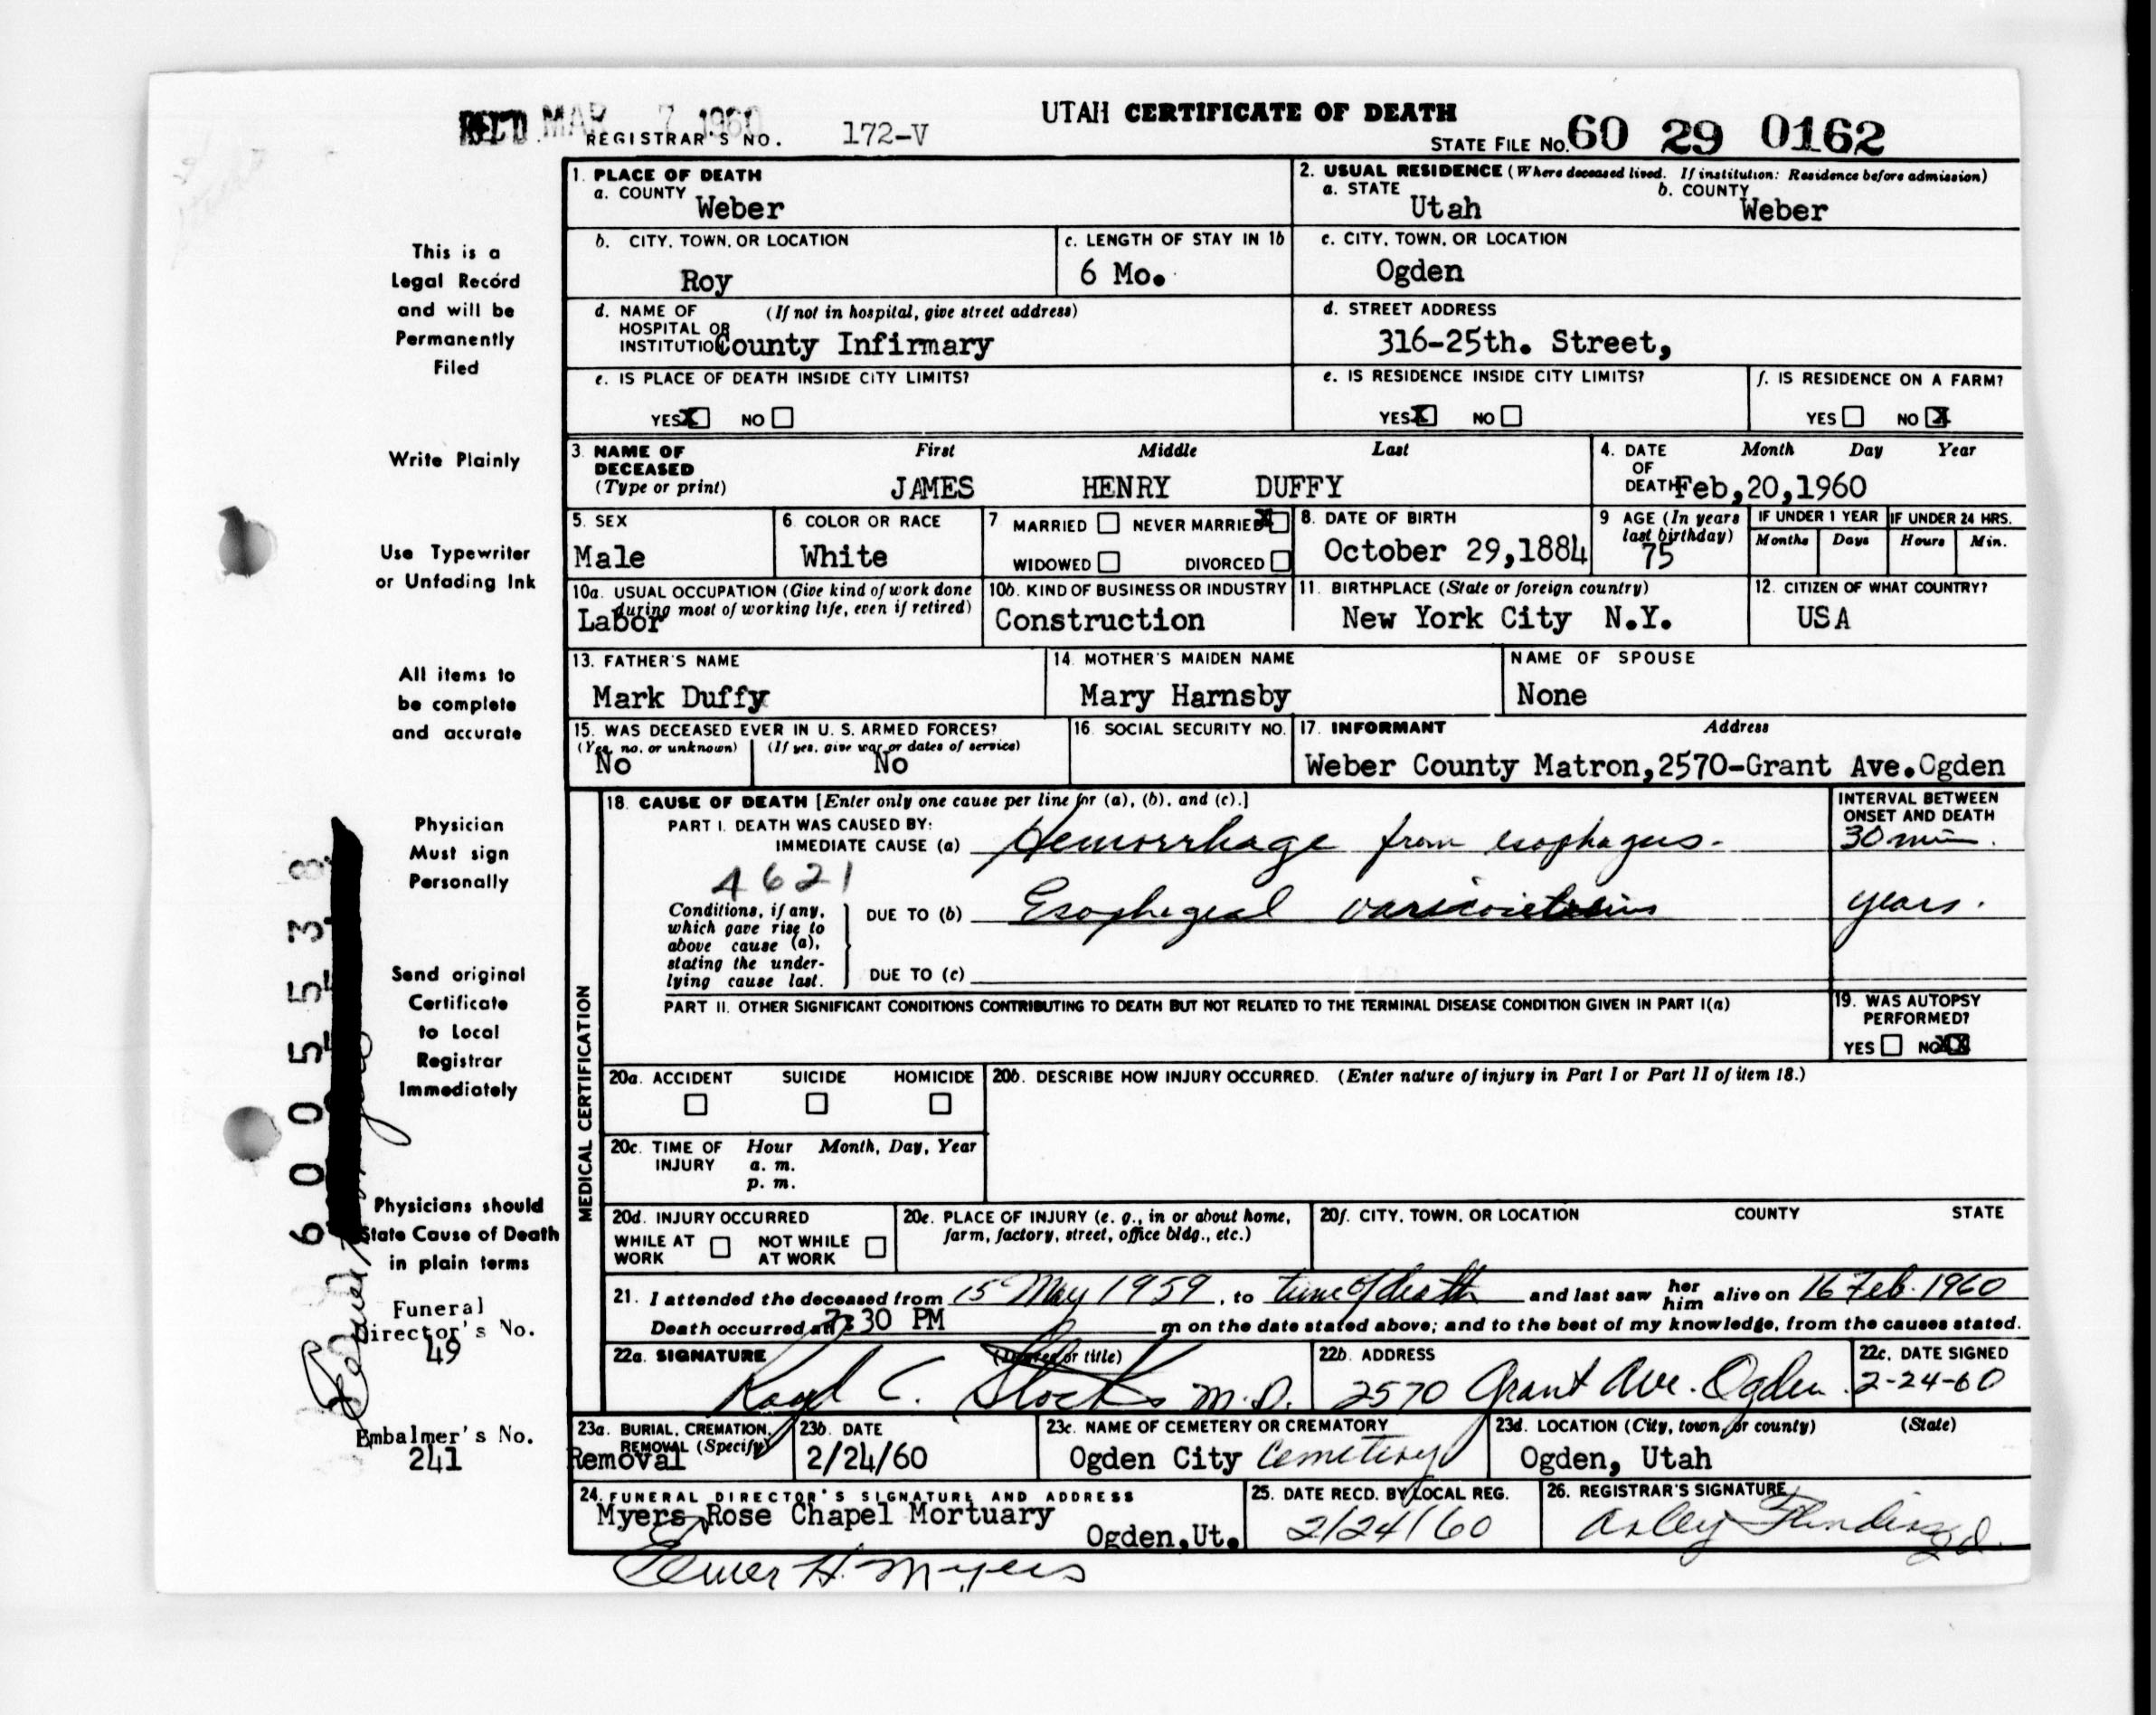 REC'D MAR 7 1960
REGISTRAR'S NO. 172-V
UTAH CERTIFICATE OF DEATH
STATE FILE NO. 60 29 0162
This is a
Legal Record
and will be
Permanently
Filed
Write Plainly
Use Typewriter
or Unfading Ink
All items to
be complete
and accurate
Physician
Must sign
Personally
Send original
Certificate
to Local
Registrar
Immediately
Physicians should
State Cause of Death
in plain terms
Funeral
Director's No.
49
Embalmer's No.
241
6005538
1. PLACE OF DEATH
a. COUNTY Weber
2. USUAL RESIDENCE (Where deceased lived. If institution: Residence before admission)
a. STATE Utah b. COUNTY Weber
b. CITY, TOWN, OR LOCATION Roy
c. LENGTH OF STAY IN 1b 6 Mo.
c. CITY, TOWN, OR LOCATION Ogden
d. NAME OF (If not in hospital, give street address)
HOSPITAL OR
INSTITUTION County Infirmary
d. STREET ADDRESS
316-25th. Street,
e. IS PLACE OF DEATH INSIDE CITY LIMITS?
YES X NO
e. IS RESIDENCE INSIDE CITY LIMITS?
YES X NO
f. IS RESIDENCE ON A FARM?
YES NO X
3. NAME OF DECEASED (Type or print)
First Middle Last
JAMES HENRY DUFFY
4. DATE OF DEATH Month Day Year
Feb,20,1960
5. SEX
Male
6. COLOR OR RACE
White
7 MARRIED NEVER MARRIED X
WIDOWED DIVORCED
8. DATE OF BIRTH
October 29,1884
9 AGE (In years last birthday)
75
IF UNDER 1 YEAR
Months Days
IF UNDER 24 HRS.
Hours Min.
10a. USUAL OCCUPATION (Give kind of work done during most of working life, even if retired)
Labor
10b. KIND OF BUSINESS OR INDUSTRY
Construction
11. BIRTHPLACE (State or foreign country)
New York City N.Y.
12. CITIZEN OF WHAT COUNTRY?
USA
13. FATHER'S NAME
Mark Duffy
14. MOTHER'S MAIDEN NAME
Mary Harnsby
NAME OF SPOUSE
None
15. WAS DECEASED EVER IN U. S. ARMED FORCES?
(Yes, no, or unknown) (If yes, give war or dates of service)
No No
16. SOCIAL SECURITY NO.
17. INFORMANT Address
Weber County Matron,2570-Grant Ave.Ogden
MEDICAL CERTIFICATION
18. CAUSE OF DEATH [Enter only one cause per line for (a), (b), and (c).]
PART I. DEATH WAS CAUSED BY:
IMMEDIATE CAUSE (a) Hemorrhage from esophagus.
INTERVAL BETWEEN
ONSET AND DEATH
30 min.
4621
Conditions, if any,
which gave rise to
above cause (a),
stating the under-
lying cause last.
DUE TO (b) Esophegeal
years.
DUE TO (c)
PART II. OTHER SIGNIFICANT CONDITIONS CONTRIBUTING TO DEATH BUT NOT RELATED TO THE TERMINAL DISEASE CONDITION GIVEN IN PART I(a)
19. WAS AUTOPSY
PERFORMED?
YES NO XX
20a. ACCIDENT SUICIDE HOMICIDE
20b. DESCRIBE HOW INJURY OCCURRED. (Enter nature of injury in Part I or Part II of item 18.)
20c. TIME OF INJURY Hour Month, Day, Year
a. m.
p. m.
20d. INJURY OCCURRED
WHILE AT WORK NOT WHILE AT WORK
20e. PLACE OF INJURY (e. g., in or about home,
farm, factory, street, office bldg., etc.)
20f. CITY, TOWN, OR LOCATION COUNTY STATE
21. I attended the deceased from 15 May 1959, to time of death and last saw her him alive on 16 Feb. 1960
Death occurred at 7:30 PM m on the date stated above; and to the best of my knowledge, from the causes stated.
22a. SIGNATURE (Degree or title)
C. Stocks M.D.
22b. ADDRESS
2570 Grant Ave. Ogden
22c. DATE SIGNED
2-24-60
23a. BURIAL, CREMATION,
REMOVAL (Specify)
Removal
23b. DATE
2/24/60
23c. NAME OF CEMETERY OR CREMATORY
Ogden City Cemetery
23d. LOCATION (City, town, or county) (State)
Ogden, Utah
24. FUNERAL DIRECTOR'S SIGNATURE AND ADDRESS
Myers Rose Chapel Mortuary
Ogden.Ut.
Elmer H. Myers
25. DATE RECD. BY LOCAL REG.
2/24/60
26. REGISTRAR'S SIGNATURE